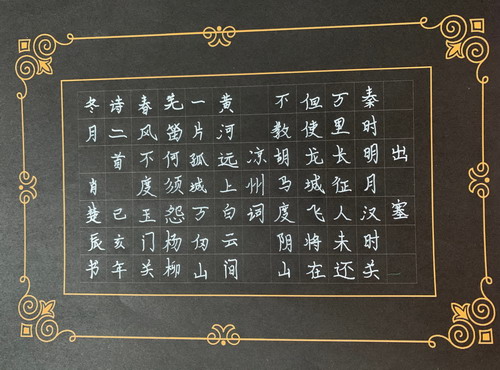 出塞
秦时明月汉时关
万里长征人未还
但使龙城飞将在
不教胡马度阴山
凉州词
黄河远上白云间
一片孤城万仞山
羌笛何须怨杨柳
春风不度玉门关
诗二首 己亥年
冬月 肖楚辰书